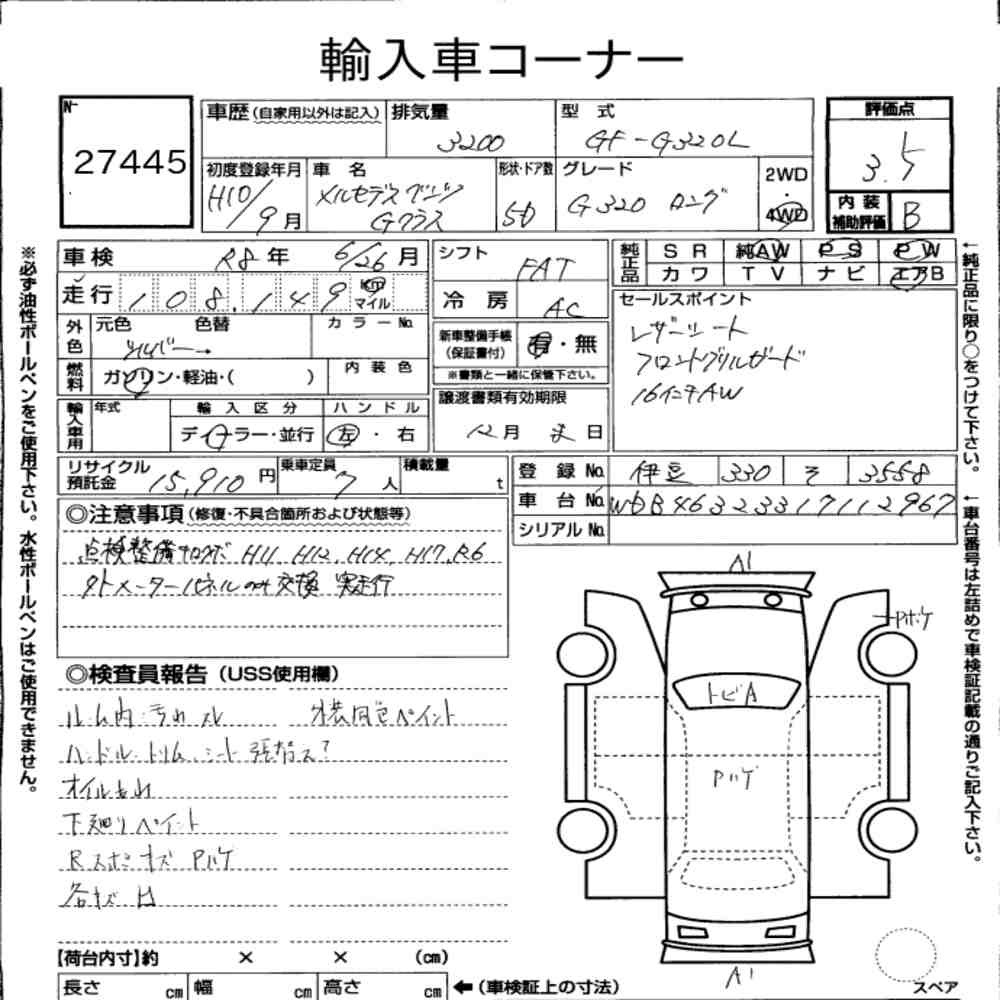 輸入車コーナー
No 27445
車歴(自家用以外は記入) 排気量 3200 型 式 GF-G320L 評価点 3.5
初度登録年月 H10/9月 車 名 メルセデスベンツ Gクラス 形状・ドア数 5D グレード G320 ロング 2WD・4WD 内装補助評価 B
車検 R8年 6/26月 シフト FAT 純正品 SR 純AW PS PW
カワ TV ナビ エアB
走行 108,149 km マイル 冷房 AC セールスポイント
外色 元色 色替 カラーNo. シルバー→ 新車整備手帳(保証書付) 有・無 レザーシート
※書類と一緒に保管下さい。 フロントグリルガード
燃料 ガソリン・軽油・( ) 内装色 譲渡書類有効期限 16インチAW
輸入車用 年式 輸入区分 ハンドル
ディーラー・並行 左・右 12月 末日
リサイクル預託金 15,910円 乗車定員 7人 積載量 t 登録No. 伊豆 330 そ 3558
車台No. WDB46323317112967
シリアルNo.
◎注意事項(修復・不具合箇所および状態等)
点検整備キロクボ H11、H12、H14、H17、R6
タトメーターパネルのみ交換 実走行
◎検査員報告(USS使用欄)
ルーム内ヨゴれスレ 外装同色ペイント
ハンドル・トリム、シート張替ス?
オイルもれ
下廻りペイント
Rスポキズ Pハゲ
各キズ凹
【荷台内寸】約 × × (cm)
長さ cm 幅 cm 高さ cm ←(車検証上の寸法)
A1
Pボケ
トビA
Pハゲ
A1
スペア
※必ず油性ボールペンをご使用下さい。水性ボールペンはご使用できません。
←純正品に限り○をつけて下さい。
←車台番号は左詰めで車検証記載の通りご記入下さい。